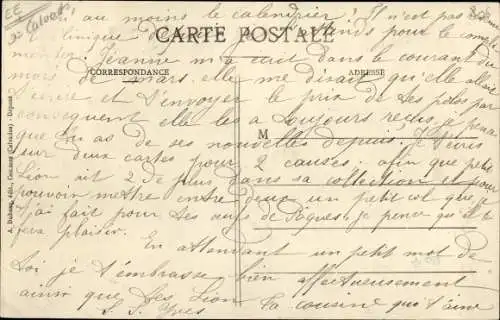 EE
au moins le calendrier ? Il n'est pas
clinique pour le
CARTE POSTALE
mencer. Jeanne m'a écrit dans le courant du
CORRESPONDANCE
ADRESSE
mois de mars, elle me disait qu'elle allait
t'écrire et t'envoyer le prix de ses pelos par
conséquent elle les a toujours reçus, je pense
M
que tu as de ses nouvelles depuis. Je t'écris
sur deux cartes pour 2 causes : afin que petit
Lion ait 2 de plus dans sa collection et pour
pouvoir mettre entre deux un petit col que je
t'ai fait pour ses œufs de Pâques, je pense qu'il te
fera plaisir. En attendant un petit mot de
toi je t'embrasse bien affectueusement
ainsi que Les Lion la cousine qui t'aime
Yves
A. Dubosq, édit., (Calvados) - Déposé